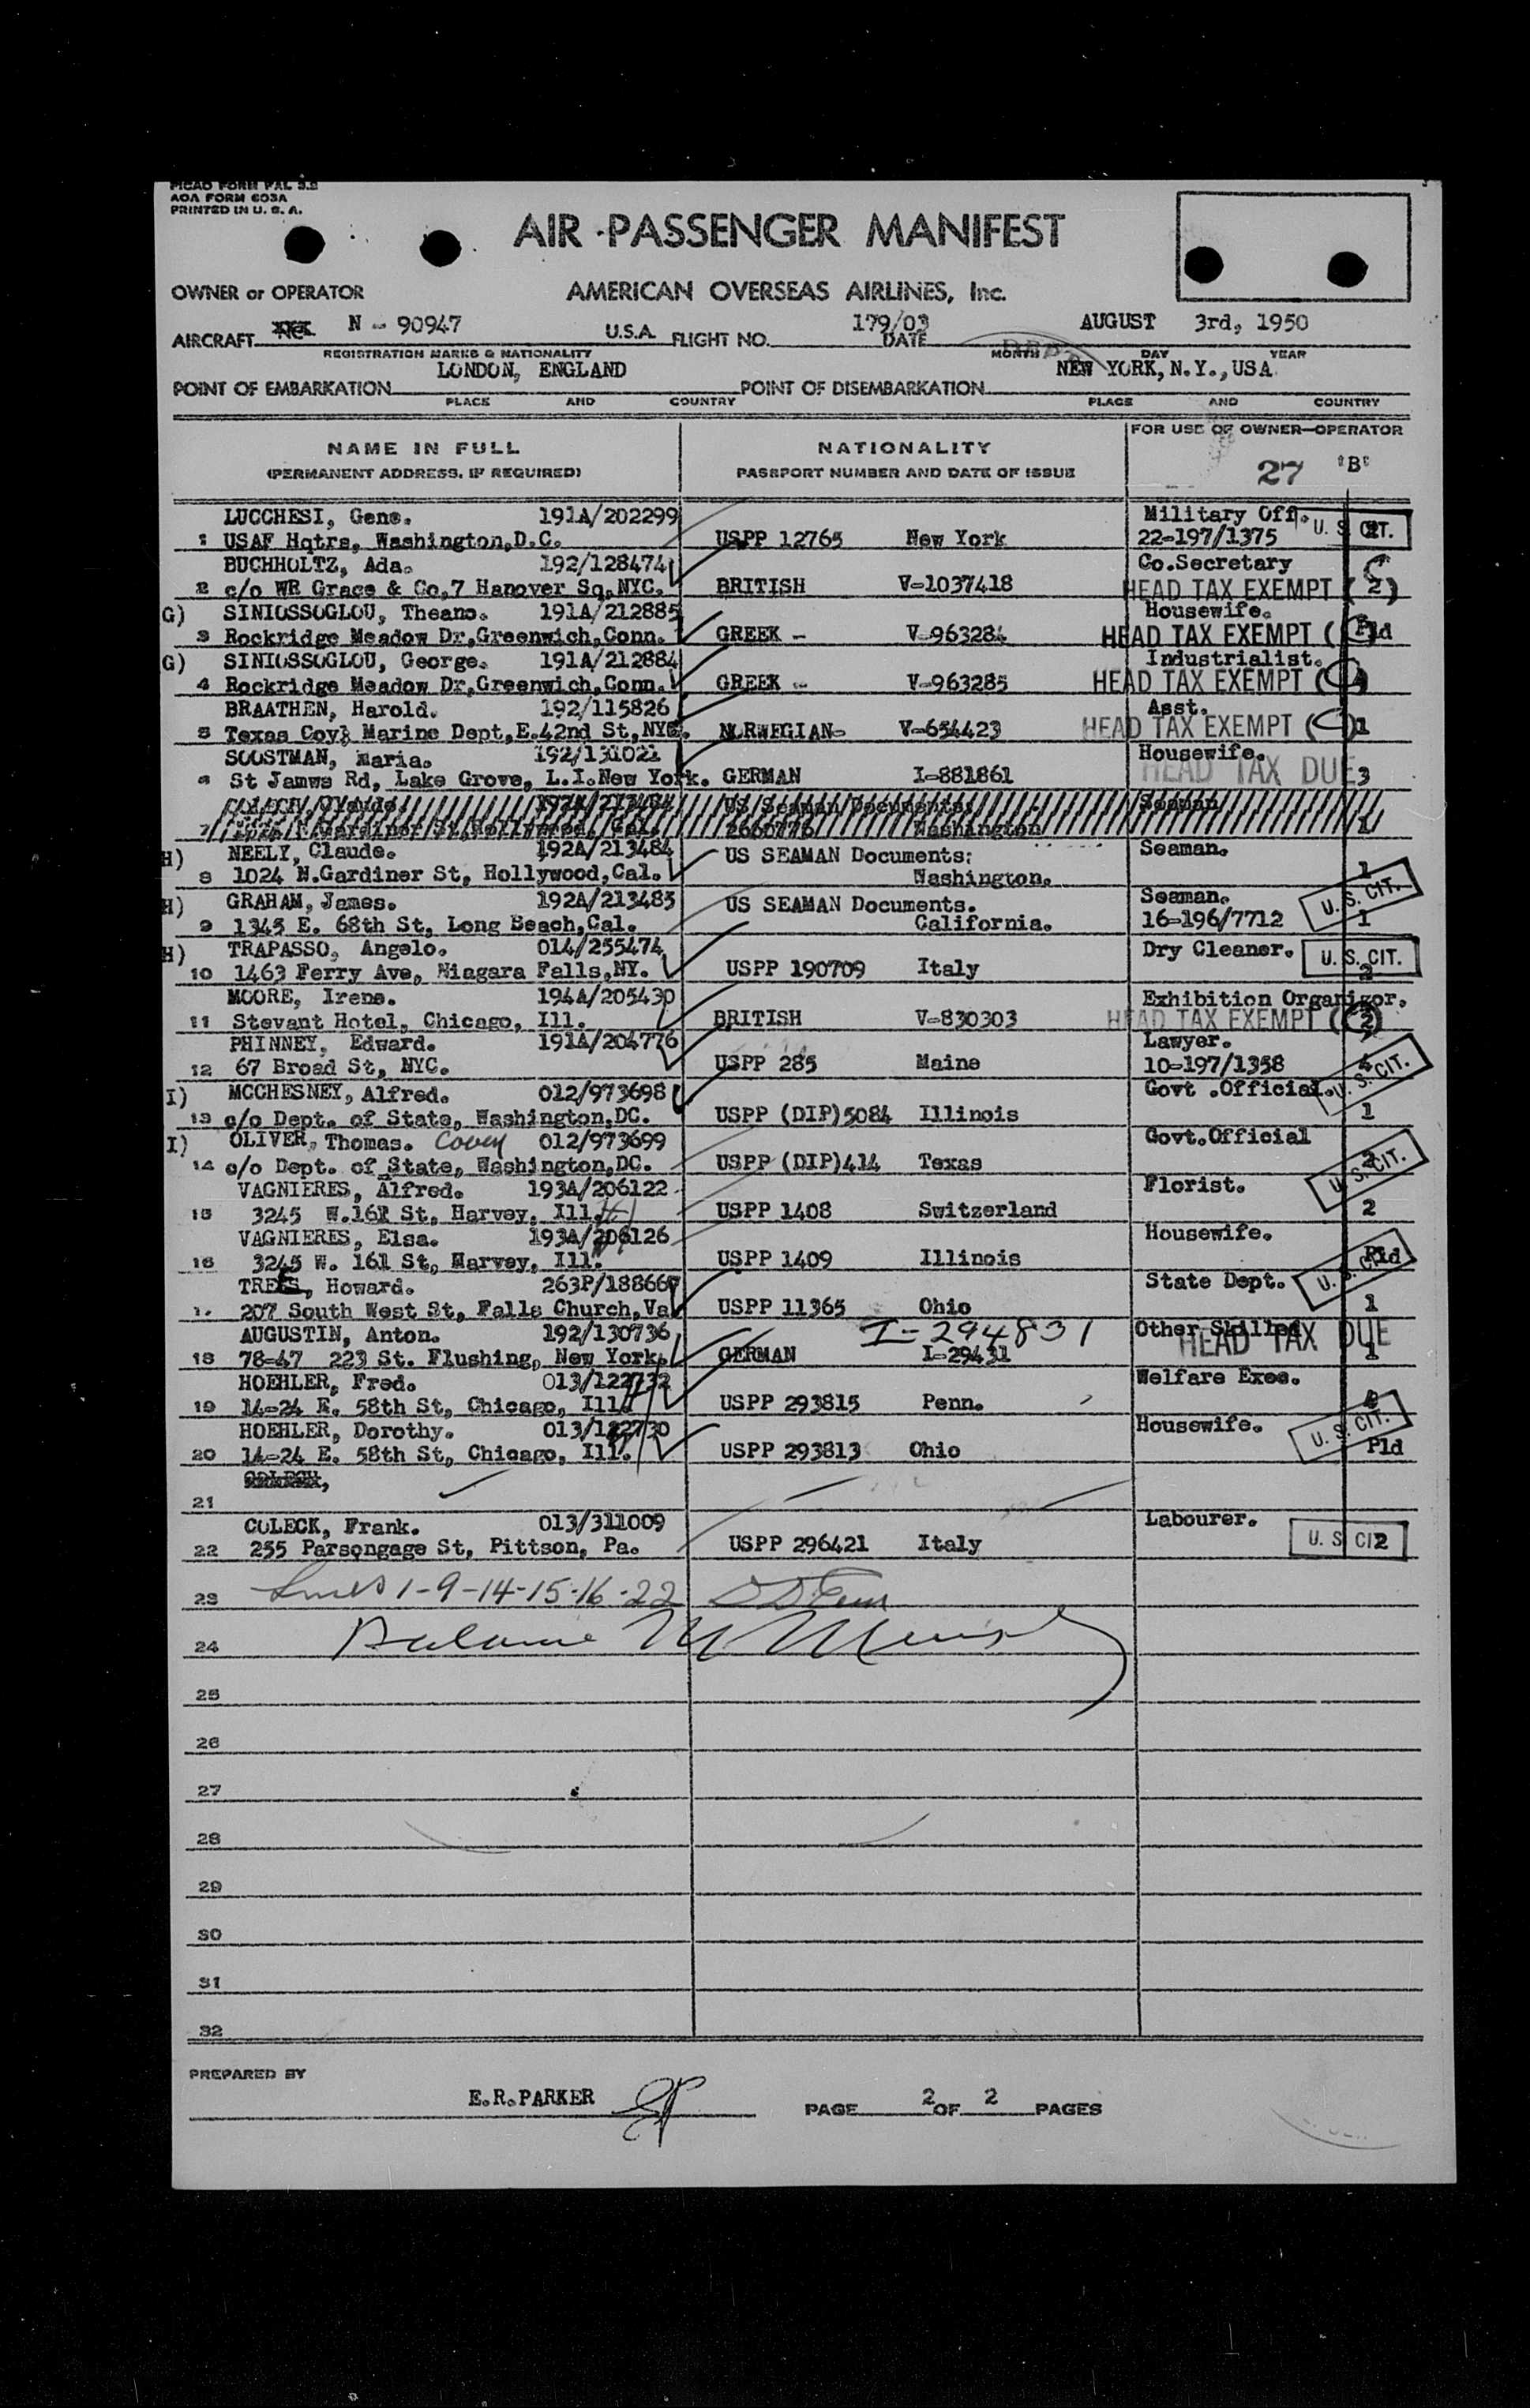 PICAO FORM PAL 3.2
AOA FORM 603A
PRINTED IN U. S. A.
AIR PASSENGER MANIFEST
OWNER or OPERATOR AMERICAN OVERSEAS AIRLINES, Inc.
AIRCRAFT N - 90947 U.S.A. FLIGHT NO. 179/03 DATE AUGUST 3rd, 1950
REGISTRATION MARKS & NATIONALITY MONTH DAY YEAR
POINT OF EMBARKATION LONDON, ENGLAND POINT OF DISEMBARKATION NEW YORK, N.Y., USA.
PLACE AND COUNTRY PLACE AND COUNTRY
NAME IN FULL NATIONALITY FOR USE OF OWNER—OPERATOR
(PERMANENT ADDRESS, IF REQUIRED) PASSPORT NUMBER AND DATE OF ISSUE 27 "B"
LUCCHESI, Gene. 191A/202299 Military Off. U. S. CIT.
1 USAF Hqtrs, Washington,D.C. USPP 12765 New York 22-197/1375
BUCHHOLTZ, Ada. 192/128474 Co.Secretary
2 c/o WR Grace & Co,7 Hanover Sq,NYC. BRITISH V-1037418 HEAD TAX EXEMPT ( 2 )
G) SINIOSSOGLOU, Theano. 191A/212885 Housewife.
3 Rockridge Meadow Dr,Greenwich,Conn. GREEK - V-963284 HEAD TAX EXEMPT ( Pld
G) SINIOSSOGLOU, George. 191A/212884 Industrialist.
4 Rockridge Meadow Dr,Greenwich,Conn. GREEK - V-963285 HEAD TAX EXEMPT ( )
BRAATHEN, Harold. 192/115826 Asst.
5 Texas Coy; Marine Dept,E.42nd St,NYC. NORWEGIAN- V-654423 HEAD TAX EXEMPT ( ) 1
SOOSTMAN, Maria. 192/131021 Housewife.
6 St Jamws Rd, Lake Grove, L.I.New York. GERMAN I-881861 HEAD TAX DUE 3
192A/213484 US Seaman Documents: Seaman
7 1024 N.Gardiner St, Hollywood, Cal. 2660776 Washington 1
H) NEELY, Claude. 192A/213484 US SEAMAN Documents: Seaman.
8 1024 N.Gardiner St, Hollywood,Cal. Washington. 1
H) GRAHAM, James. 192A/213483 US SEAMAN Documents. Seaman. U. S. CIT.
9 1345 E. 68th St, Long Beach,Cal. California. 16-196/7712 1
H) TRAPASSO, Angelo. 014/255474 Dry Cleaner. U. S. CIT.
10 1463 Ferry Ave, Niagara Falls,NY. USPP 190709 Italy 2
MOORE, Irene. 194A/205430 Exhibition Organizor.
11 Stevant Hotel, Chicago, Ill. BRITISH V-830303 HEAD TAX EXEMPT ( 2 )
PHINNEY, Edward. 191A/204776 Lawyer.
12 67 Broad St, NYC. USPP 285 Maine 10-197/1358 U. S. CIT.
I) MCCHESNEY, Alfred. 012/973698 Govt .Official.
13 c/o Dept. of State, Washington,DC. USPP (DIP)5084 Illinois 1
I) OLIVER, Thomas. Covey 012/973699 Govt.Official
14 c/o Dept. of State, Washington,DC. USPP (DIP)414 Texas 2 U. S. CIT.
VAGNIERES, Alfred. 193A/206122 Florist.
15 3245 W.161 St, Harvey, Ill. USPP 1408 Switzerland 2
VAGNIERES, Elsa. 193A/206126 Housewife.
16 3245 W. 161 St, Harvey, Ill. USPP 1409 Illinois Pld U. S. CIT.
TREES, Howard. 263P/188667 State Dept.
17 207 South West St, Falls Church,Va. USPP 11365 Ohio 1
AUGUSTIN, Anton. 192/130736 I-294831 Other Skilled
18 78-47 223 St. Flushing, New York. GERMAN I-29431 HEAD TAX DUE 1
HOEHLER, Fred. 013/122732 Welfare Exec.
19 14-24 E. 58th St, Chicago, Ill. USPP 293815 Penn.
HOEHLER, Dorothy. 013/122730 Housewife. U. S. CIT.
20 14-24 E. 58th St, Chicago, Ill. USPP 293813 Ohio Pld
21
COLECK, Frank. 013/311009 Labourer.
22 255 Parsongage St, Pittson, Pa. USPP 296421 Italy U. S. CIT. 2
23 Lines 1-9-14-15-16-22
24
25
26
27
28
29
30
31
32
PREPARED BY
E.R.PARKER PAGE 2 OF 2 PAGES